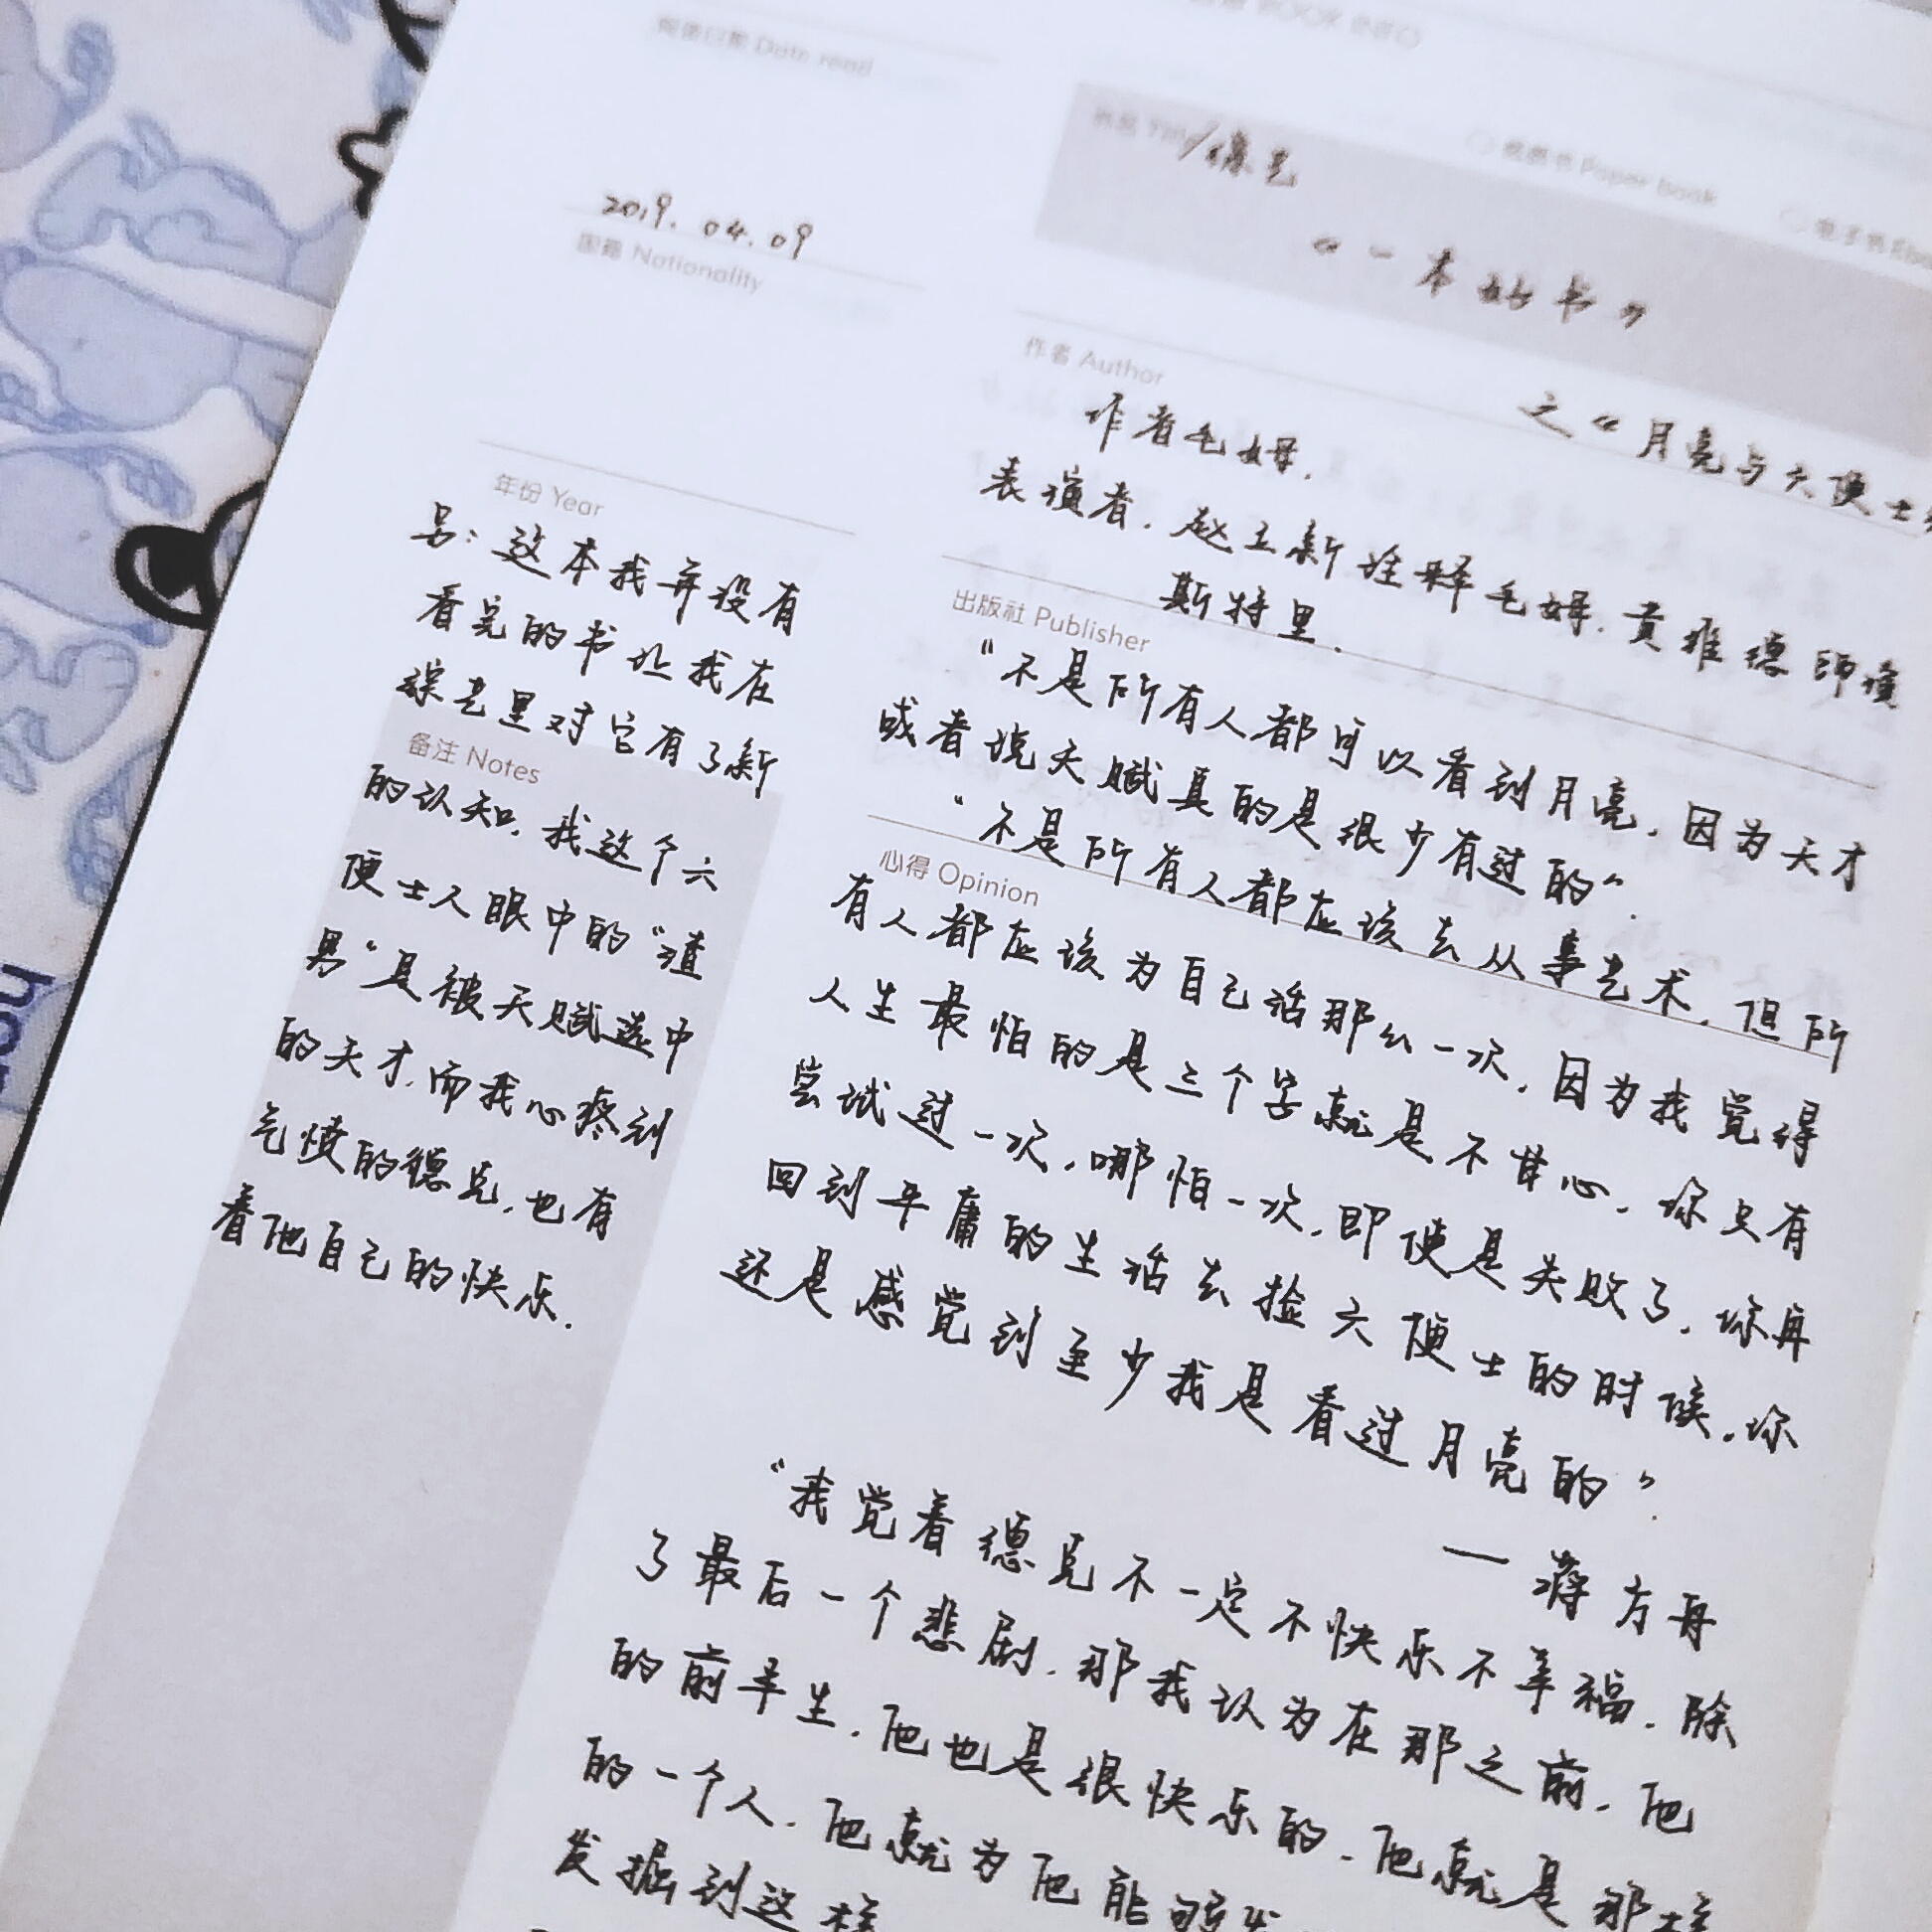 阅读日期 Date read
2019.04.09
国籍 Nationality
年份 Year
另：这本我并没有
看完的书让我在
综艺里对它有了新
备注 Notes
的认知。我这个六
便士人眼中的“渣
男”是被天赋选中
的天才，而我心疼到
气愤的德克，也有
着他自己的快乐.
书名 Title
/综艺
纸质书 Paper Book
电子书
《一本好书》
之《月亮与六便士
作者 Author
作者毛姆.
表演者. 赵立新诠释毛姆. 黄维德饰演
斯特里.
出版社 Publisher
“不是所有人都可以看到月亮，因为天才
或者说天赋真的是很少有过的”.
“不是所有人都应该去从事艺术，但所
心得 Opinion
有人都应该为自己活那么一次，因为我觉得
人生最怕的是三个字就是不甘心，你只有
尝试过一次，哪怕一次，即使是失败了，你再
回到平庸的生活去捡六便士的时候，你
还是感觉到至少我是看过月亮的”.
— 蒋方舟
“我觉着德克不一定不快乐不幸福，除
了最后一个悲剧，那我认为在那之前，他
的前半生，他也是很快乐的，他就是那样
的一个人，他就为他能够发
发掘到这样